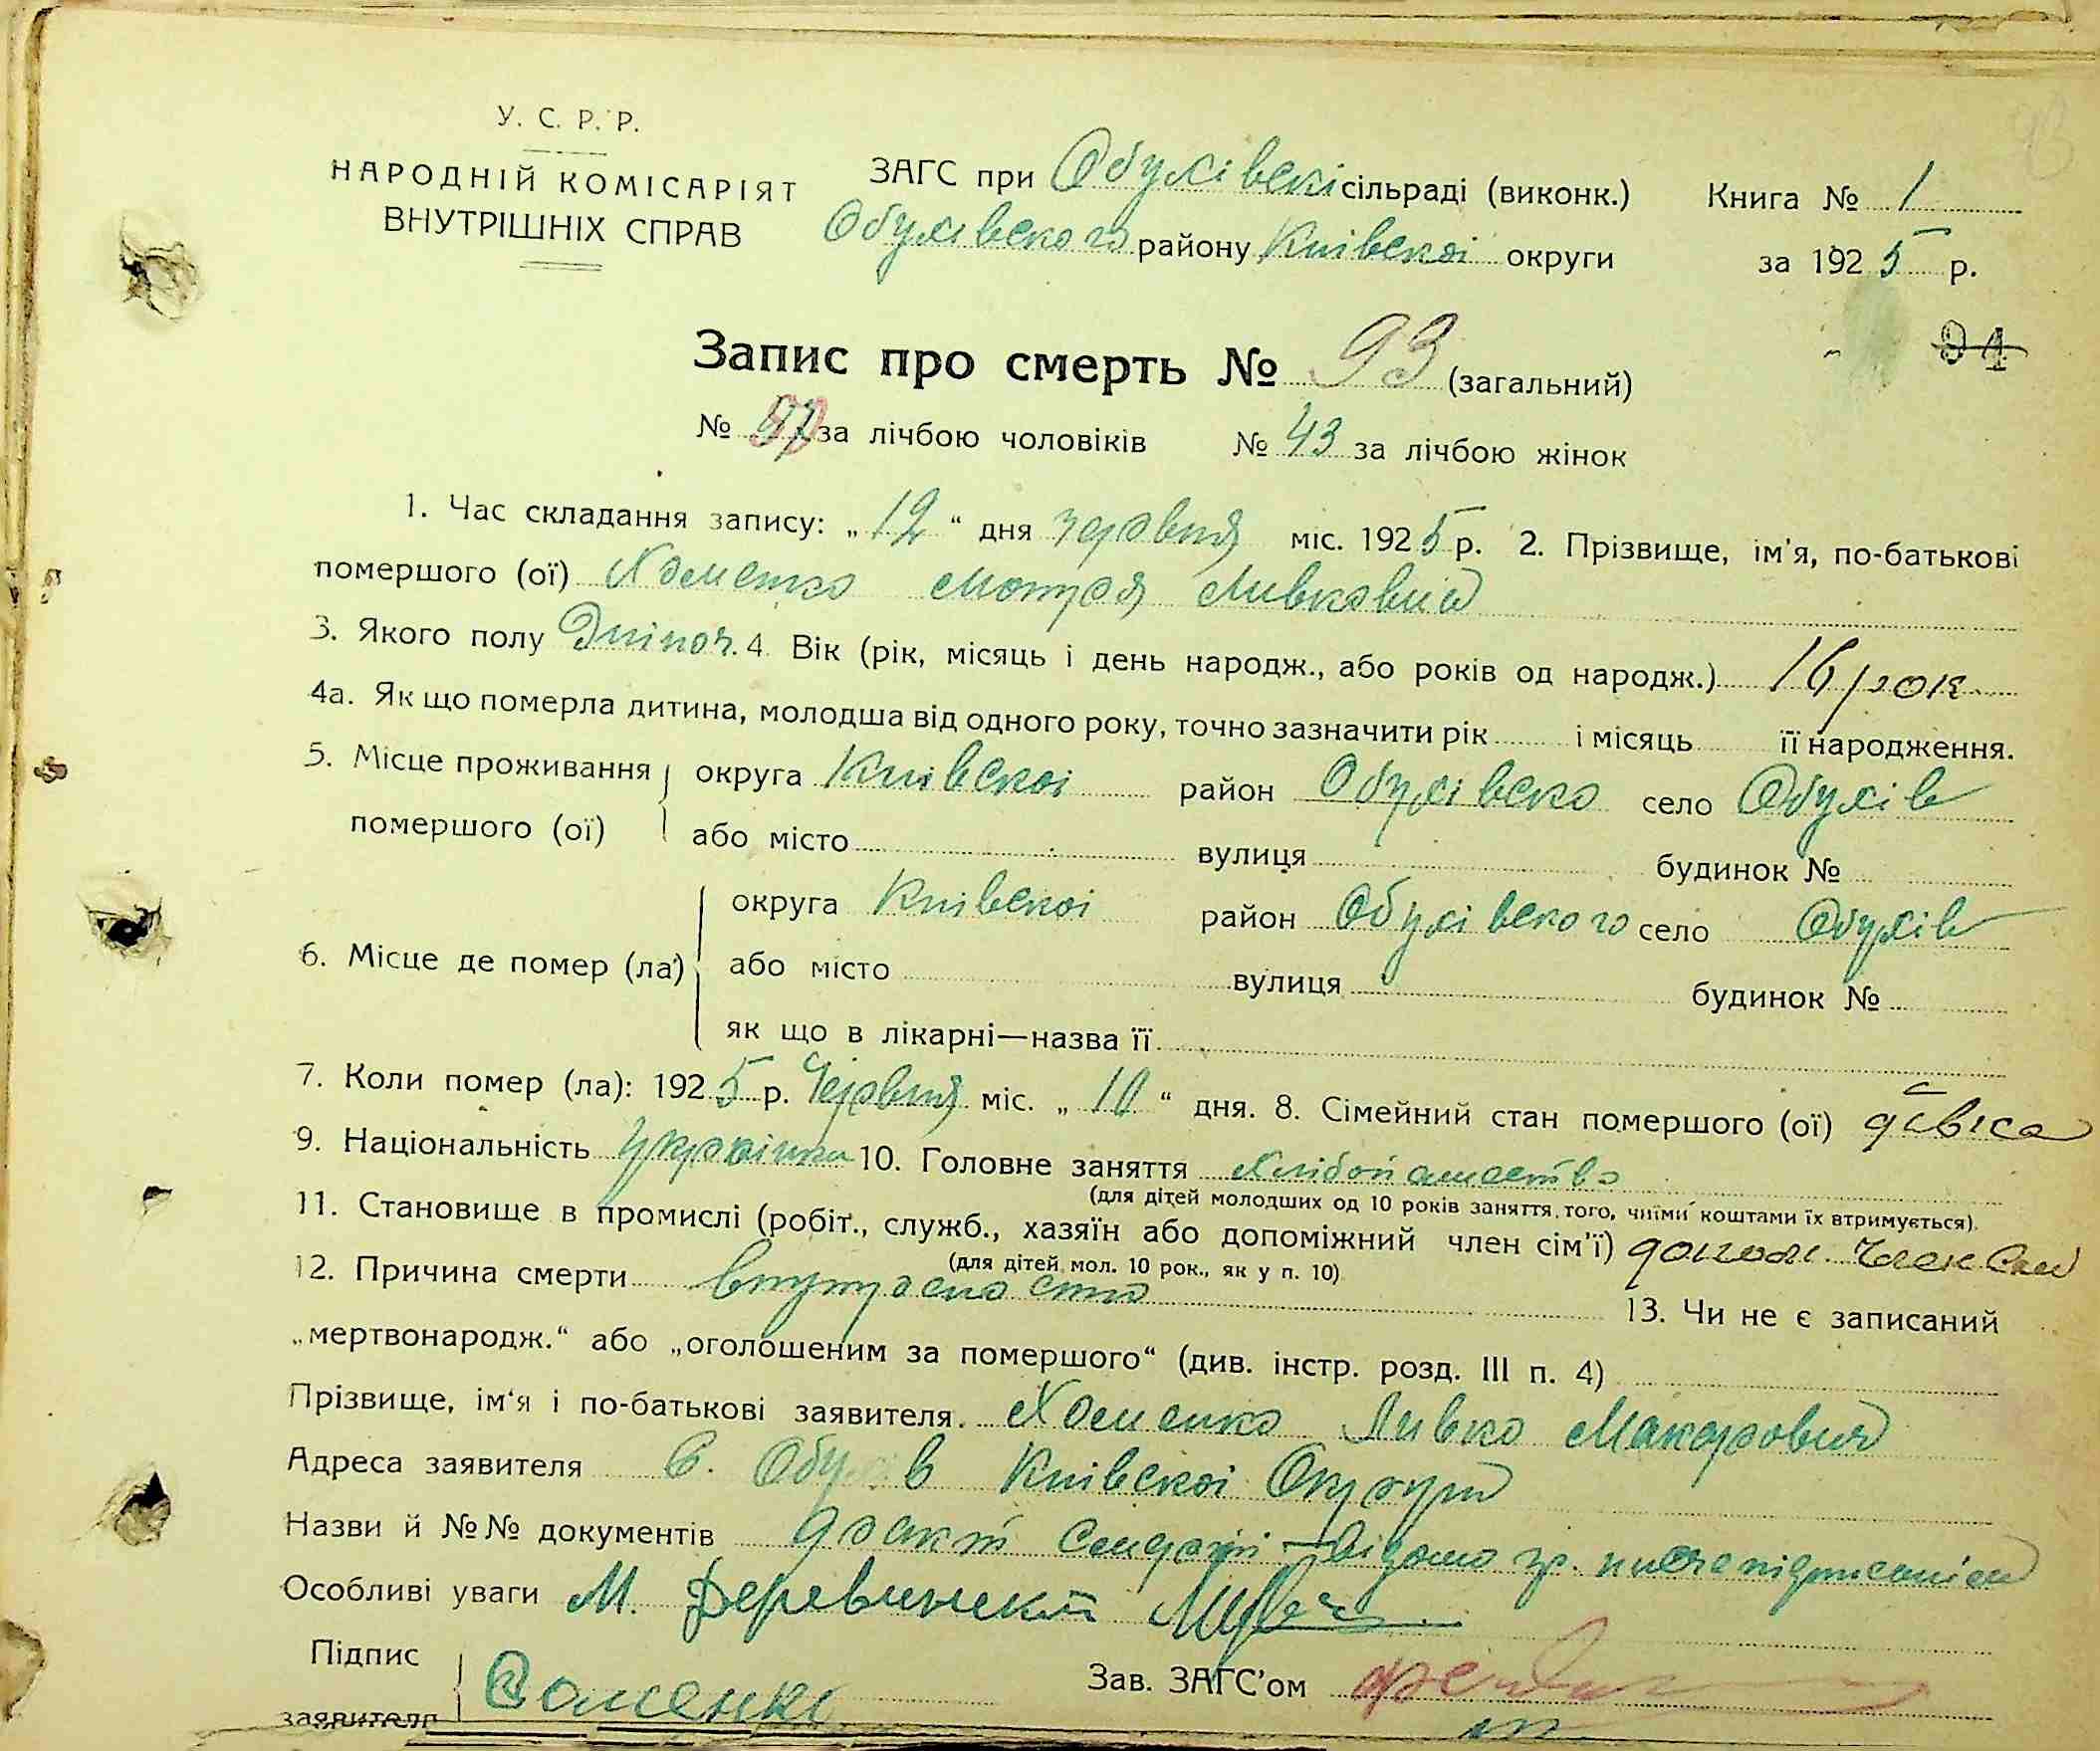 У. С. Р. Р.
НАРОДНІЙ КОМІСАРІЯТ
ВНУТРІШНІХ СПРАВ
ЗАГС при Обухівскі сільраді (виконк.) Книга № 1
Обухівского району Київскої округи за 1925 р.
94
Запис про смерть № 93 (загальний)
№ за лічбою чоловіків № 43 за лічбою жінок
1. Час складання запису: „12“ дня червня міс. 1925 р. 2. Прізвище, ім'я, по-батькові
помершого (ої) Хоменко Мотря Ливковна
3. Якого полу Жіноч. 4. Вік (рік, місяць і день народж., або років од народж.) 16 рок
4а. Як що померла дитина, молодша від одного року, точно зазначити рік і місяць її народження.
5. Місце проживання помершого (ої) округа Київскої район Обухівско село Обухів
або місто вулиця будинок №
6. Місце де помер (ла) округа Київскої район Обухівского село Обухів
або місто вулиця будинок №
як що в лікарні—назва її
7. Коли помер (ла): 1925 р. Червня міс. „10“ дня. 8. Сімейний стан помершого (ої) дівка
9. Національність Українка 10. Головне заняття Хлібопашество
(для дітей молодших од 10 років заняття того, чиїми коштами їх втримується).
11. Становище в промислі (робіт., служб., хазяїн або допоміжний член сім'ї) допом. член сем
(для дітей мол. 10 рок., як у п. 10)
12. Причина смерти 13. Чи не є записаний
„мертвонародж.“ або „оголошеним за помершого“ (див. інстр. розд. III п. 4)
Прізвище, ім'я і по-батькові заявителя. Хоменко Ливко Макарович
Адреса заявителя с. Обухів Київскої Округи
Назви й №№ документів факт смерті відомо гр. нижчепідписаним
Особливі уваги М.
Підпис заявителя Хоменко Зав. ЗАГС'ом